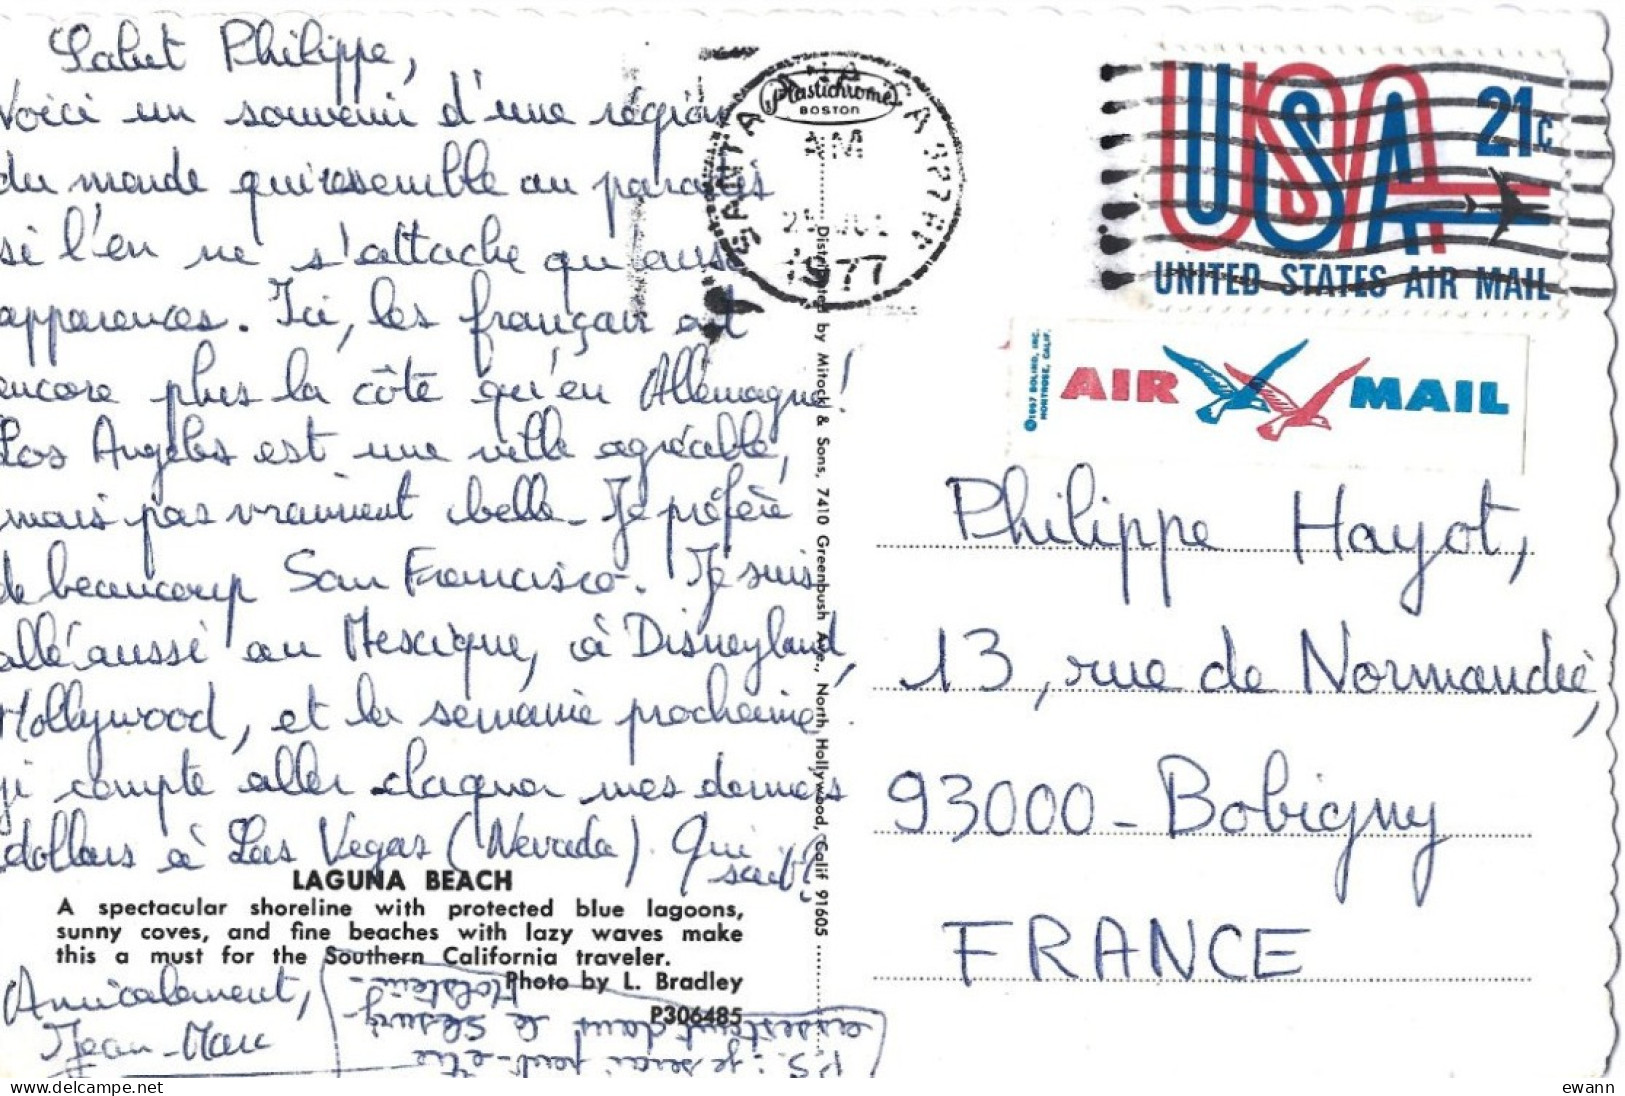 Salut Philippe,
Voici un souvenir d'une région
du monde qui ressemble au paradis
si l'on ne s'attache qu'aux
apparences. Ici, les français ont
encore plus la côte qu'en Allemagne!
Los Angeles est une ville agréable,
mais pas vraiment belle. Je préfère
de beaucoup San Francisco. Je suis
allé aussi au Mexique, à Disneyland,
Hollywood, et la semaine prochaine
j'compte aller claquer mes derniers
dollars à Las Vegas (Nevada). Qui
sait?
LAGUNA BEACH
A spectacular shoreline with protected blue lagoons,
sunny coves, and fine beaches with lazy waves make
this a must for the Southern California traveler.
Photo by L. Bradley
P306485
Amicalement,
Jean-Marc
P.S.: je serai peut-être
assistant dans le Slesvig-
Holstein.
Distributed by Mitock & Sons, 7410 Greenbush Ave., North Hollywood, Calif 91605
Plastichrome
BOSTON
SANTA ANA CA 927
AM
1977
USA
21c
UNITED STATES AIR MAIL
© 1957 BOLIND, INC.
MONTROSE, CALIF.
AIR MAIL
Philippe Hayot,
13, rue de Normandie,
93000 - Bobigny
FRANCE
ewann